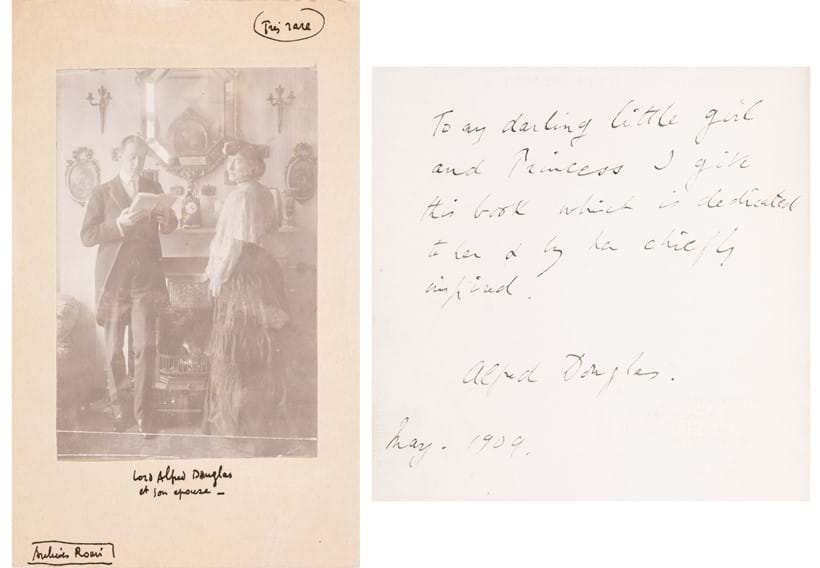 Très rare
Lord Alfred Douglas
et son epouse —
Archives
To my darling little girl
and Princess I give
this book which is dedicated
to her & by her chiefly
inspired.
Alfred Douglas.
May. 1909.